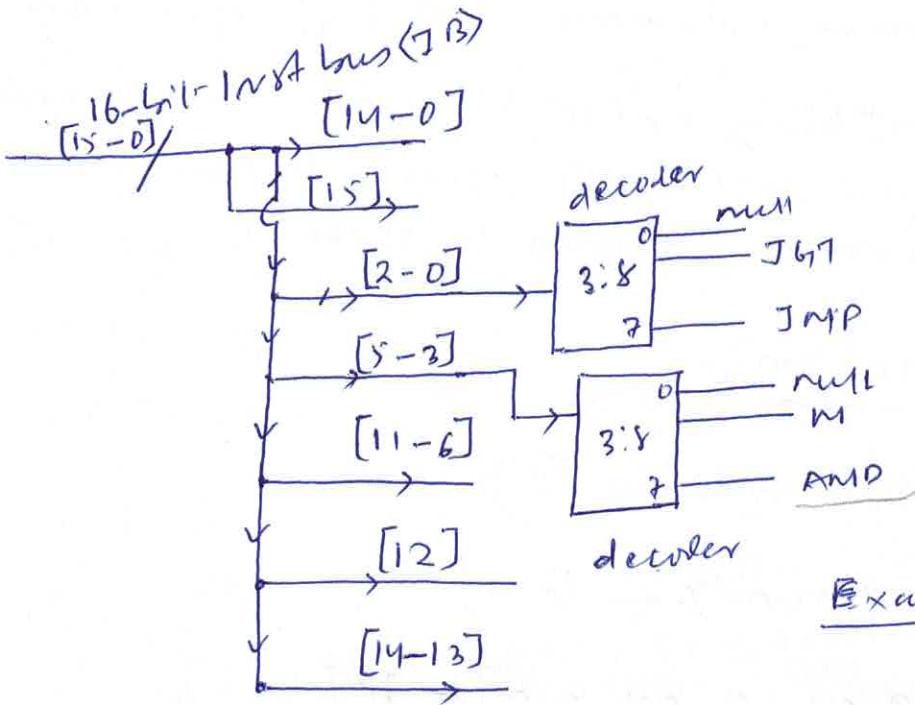 16-bit-Inst bus (IB)
[15-0]
[14-0]
[15]
decoder
[2-0]
3:8
0
7
null
JGT
JMP
[5-3]
3:8
0
7
null
M
AMD
decoder
[11-6]
[12]
[14-13]